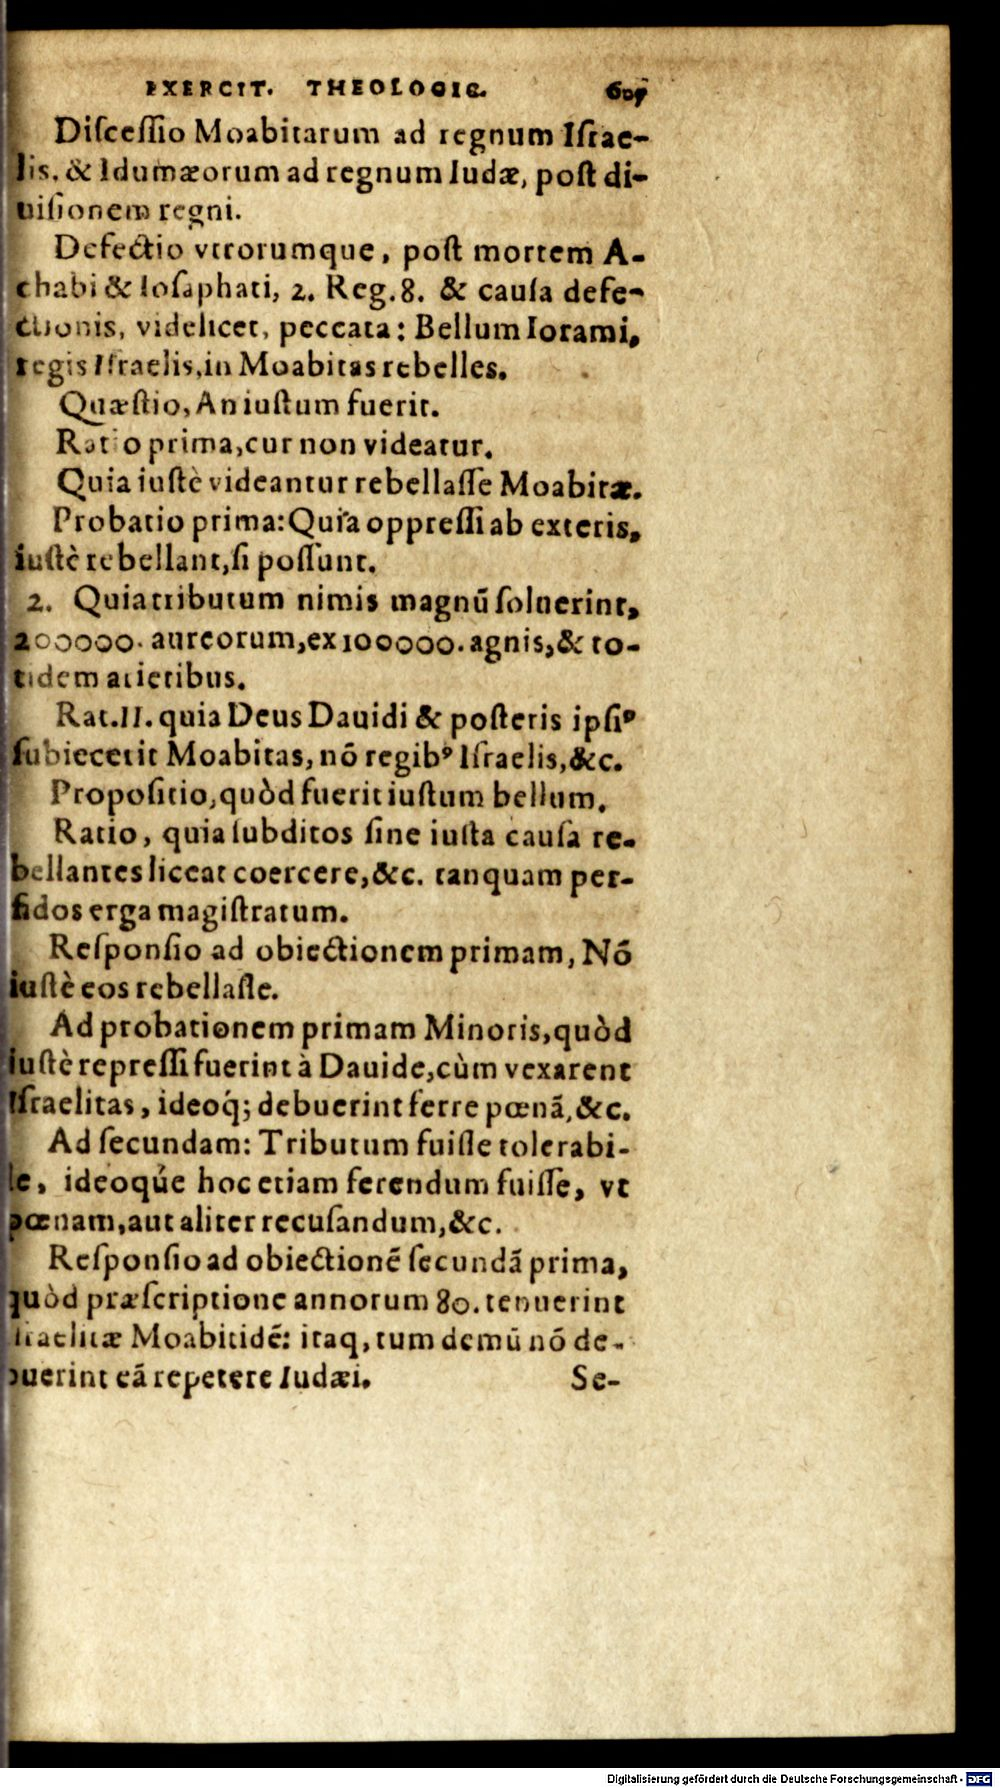 EXERCIT. THEOLOGIC. 605
Diſceſſio Moabitarum ad regnum Iſrae-
lis, & Idumæorum ad regnum Iudæ, poſt di-
uiſionem regni.
Defectio vtrorumque, poſt mortem A-
chabi & Ioſaphati, 2. Reg. 8. & cauſa defe-
ctionis, videlicet, peccata: Bellum Iorami,
regis Iſraelis, in Moabitas rebelles.
Quæſtio, An iuſtum fuerit.
Ratio prima, cur non videatur.
Quia iuſtè videantur rebellaſſe Moabitæ.
Probatio prima: Quia oppreſſi ab exteris,
iuſtè rebellant, ſi poſſunt.
2. Quia tributum nimis magnū ſoluerint,
200000. aureorum, ex 100000. agnis, & to-
tidem arietibus.
Rat. II. quia Deus Dauidi & poſteris ipſiꝰ
ſubiecerit Moabitas, nō regibꝰ Iſraelis, &c.
Propoſitio, quòd fuerit iuſtum bellum.
Ratio, quia ſubditos ſine iuſta cauſa re-
bellantes liceat coercere, &c. tanquam per-
fidos erga magiſtratum.
Reſponſio ad obiectionem primam, Nō
iuſtè eos rebellaſſe.
Ad probationem primam Minoris, quòd
iuſtè repreſſi fuerint à Dauide, cùm vexarent
Iſraelitas, ideoq́; debuerint ferre pœnā, &c.
Ad ſecundam: Tributum fuiſſe tolerabi-
le, ideoqúe hoc etiam ferendum fuiſſe, vt
pœnam, aut aliter recuſandum, &c.
Reſponſio ad obiectionē ſecundā prima,
quòd præſcriptione annorum 80. tenuerint
Iſraelitæ Moabitidē: itaq, tum demū nō de-
buerint eā repetere Iudæi.
Se-
Digitalisierung gefördert durch die Deutsche Forschungsgemeinschaft - DFG